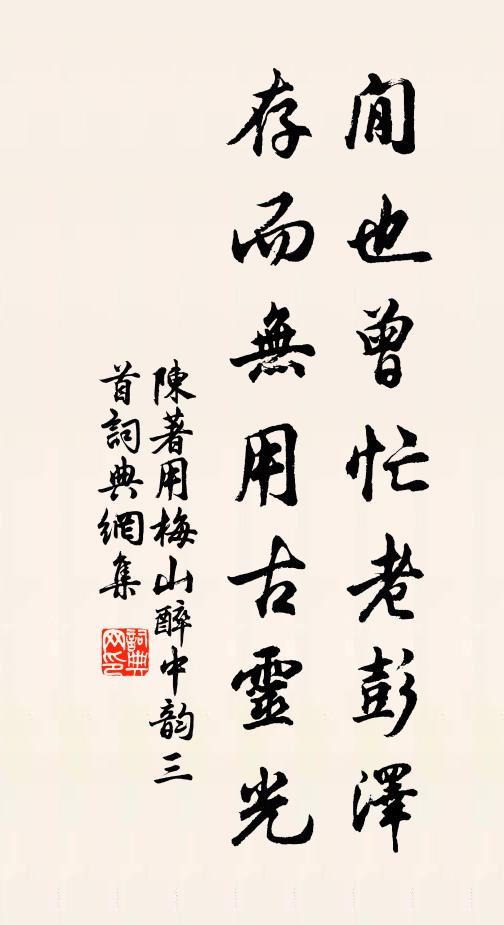 閒也曾忙老彭澤
存而無用古靈光
陳著用梅山醉中韵三
首詞典網集
詞典
网印